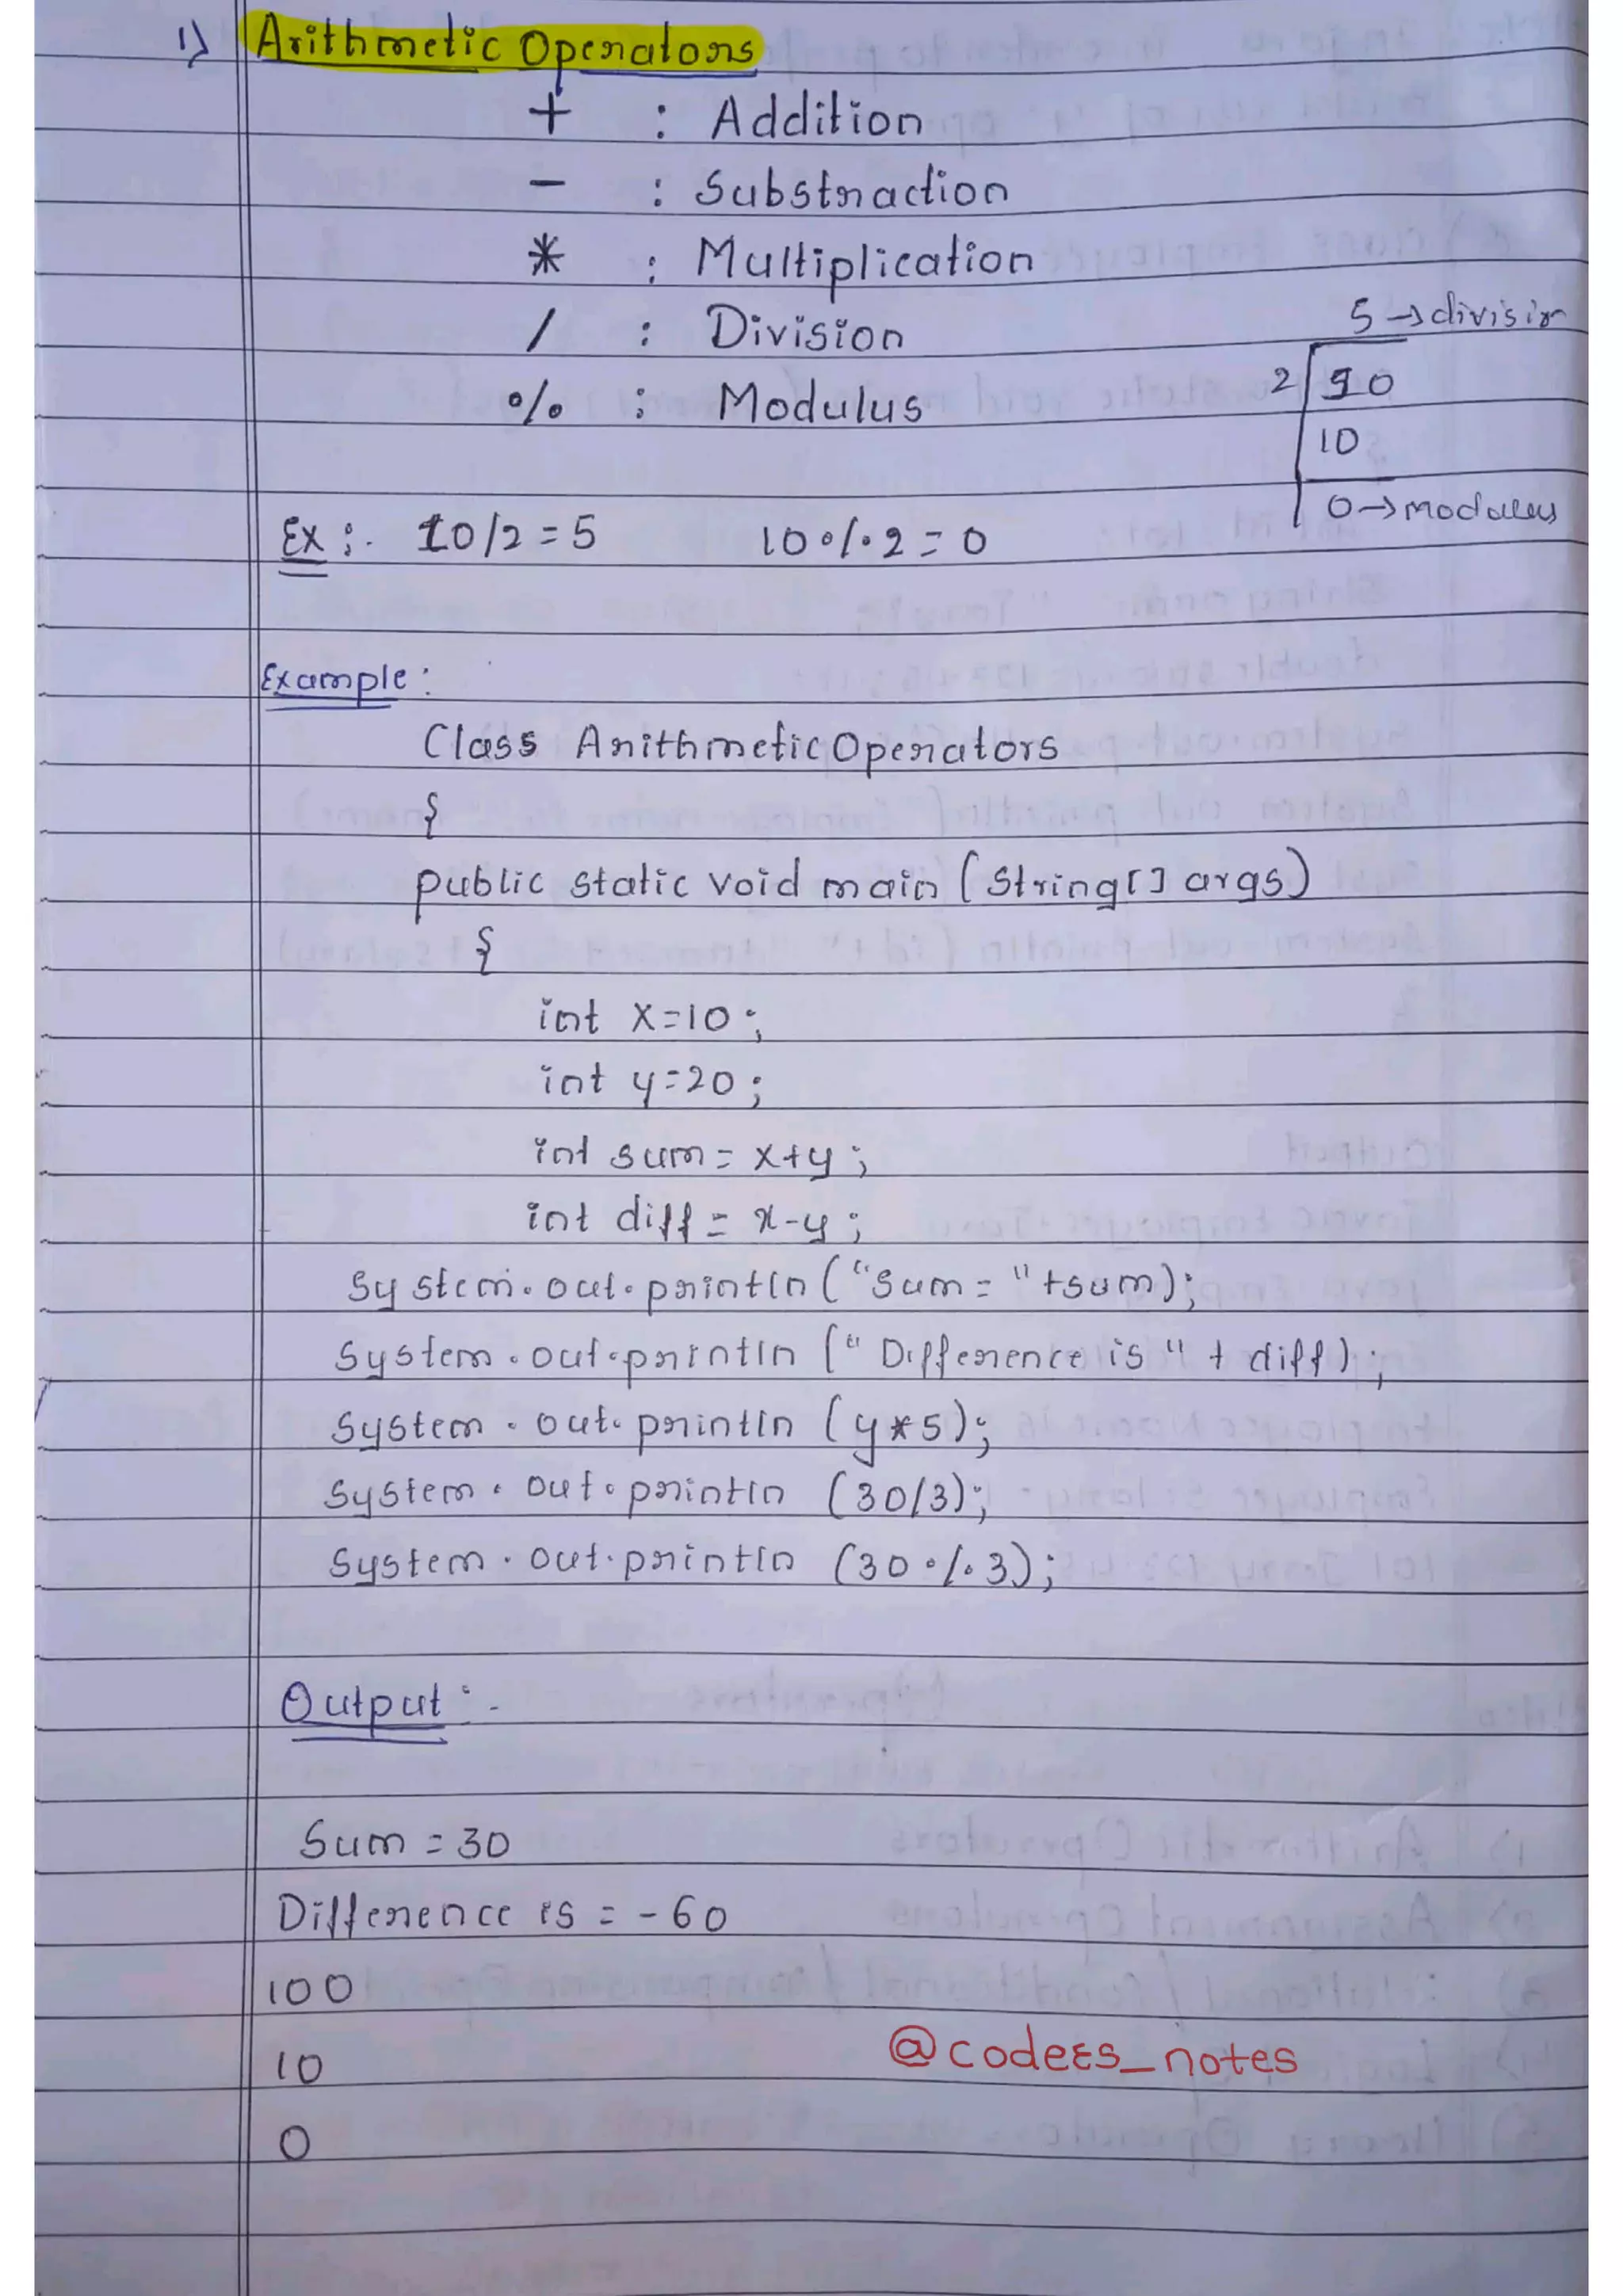 1) Arithmetic Operators
+ : Addition
- : Substraction
* : Multiplication
/ : Division
% : Modulus
5 → division
2 90
10
0 → modulus
Ex :- 10/2 = 5 10%2 = 0
Example :
Class ArithmeticOperators
{
public static void main (String[] args)
{
int x=10;
int y=20;
int sum = x+y;
int diff = x-y;
System.out.println ("Sum = " +sum);
System.out.println (" Difference is " + diff);
System.out.println (y*5);
System.out.println (30/3);
System.out.println (30%3);
Output :-
Sum = 30
Difference is = -60
100
10
0
@codees_notes